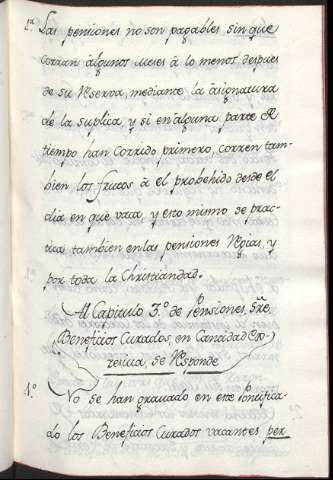 1.ª Las pensiones no son pagables sin que
corran algunos meses à lo menos despues
de su Reserva, mediante la asignatura
de la suplica y si en alguna parte el
tiempo han corrido primero, corren tam-
bien los frutos à el probehido desde el
dia en que vaca, y esto mismo se prac-
tica tambien en las pensiones Regias, y
por toda la Christiandad.
Al Capitulo 3.º de Pensiones, sre
Beneficios Curados, en Cantidad
se Responde
4.º No se han gravado en este Pontifica-
do los Beneficios Curados vacantes per